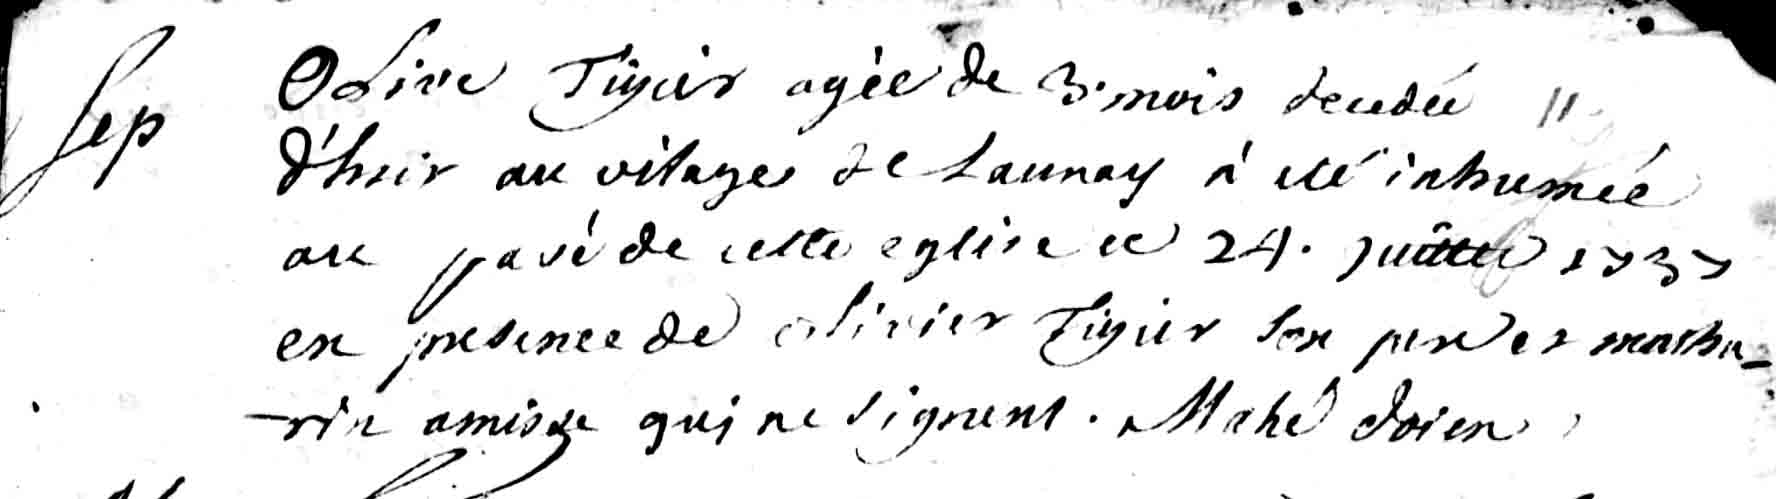 Sep Olive Tiger agée de 3. mois decedée
d'hier au vilage de Launay a eté inhumée
au pavé de cette eglise ce 24. juillet 1737
en presence de olivier Tiger son pere et mathu-
-rin amisse qui ne signent. Mahé doien